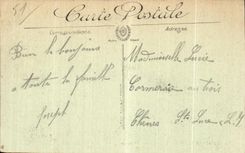 51
Carte Postale
Correspondance
Adresse
Bien le bonjour
Mademoiselle Lucie
a toute la famille
Cormerais au trois
Joseph
Chênes Ste Luce L. I